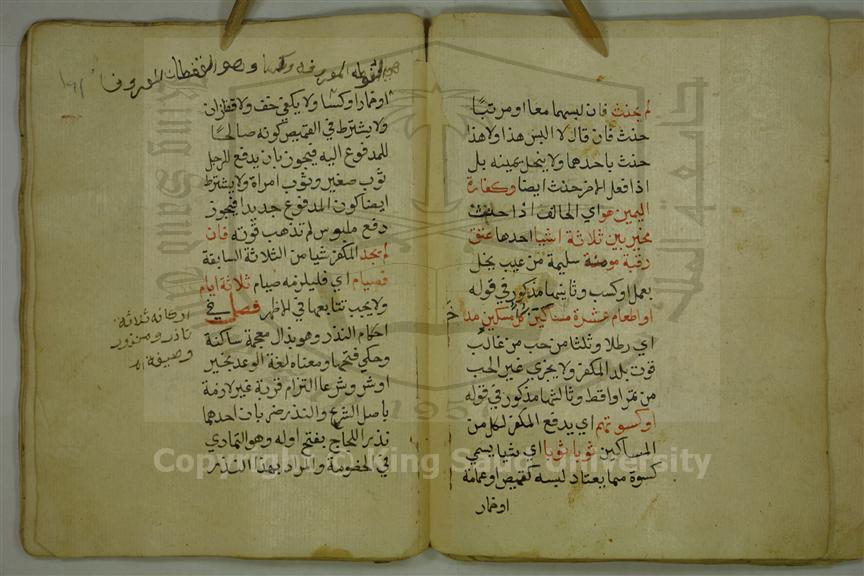 لم يحنث فان لبسهما معا او مرتبا
حنث فان قال لا البس هذا ولا هذا
حنث باحدهما ولا ينحل يمينه بل
اذا فعل الاخر حنث ايضا وكفارة
اليمين هو اي الحالف اذا حنث
مخير بين ثلاثة اشيا احدها عتق
رقبة مومنة سليمة من عيب يخل
بعمل او كسب وثانيها مذكور في قوله
او اطعام عشرة مساكين كل مسكين مدا
اي رطلا وثلثا من حب من غالب
قوت بلد المكفر ولا يجزى غير الحب
من تمر او اقط وثالثها مذكور في قوله
او كسوتهم اي يدفع المكفر لكل من
المساكين ثوبا ثوبا اي شيا يسمى
كسوة مما يعتاد لبسه كقميص او عمامة
او خمار
المعروفة وهو القفطان المعروف
او خمار او كسا ولا يكفي خف ولا قفازان
ولا يشترط في القميص كونه صالحا
للمدفوع اليه فيجوز بان يدفع للرجل
ثوب صغير وثوب امراة ولا يشترط
ايضا كون المدفوع جديدا فيجوز
دفع ملبوس لم تذهب قوته فان
لم يجد المكفر شيا من الثلاثة السابقة
فصيام اي فليلزمه صيام ثلاثة ايام
ولا يجب تتابعها في الاظهر فصل في
احكام النذر وهو بذال معجمة ساكنة
وحكي فتحها ومعناه لغة الوعد بخير
او شر وشرعا التزام قربة غير لازمة
باصل الشرع والنذر ضربان احدهما
نذر اللجاج بفتح اوله وهو التمادي
في الخصومة والمراد بهذا النذر
اركانه ثلاثة
ناذر ومنذور
وصيغة
جامعة الملك سعود
King Saud University
1957
Copyright © King Saud University